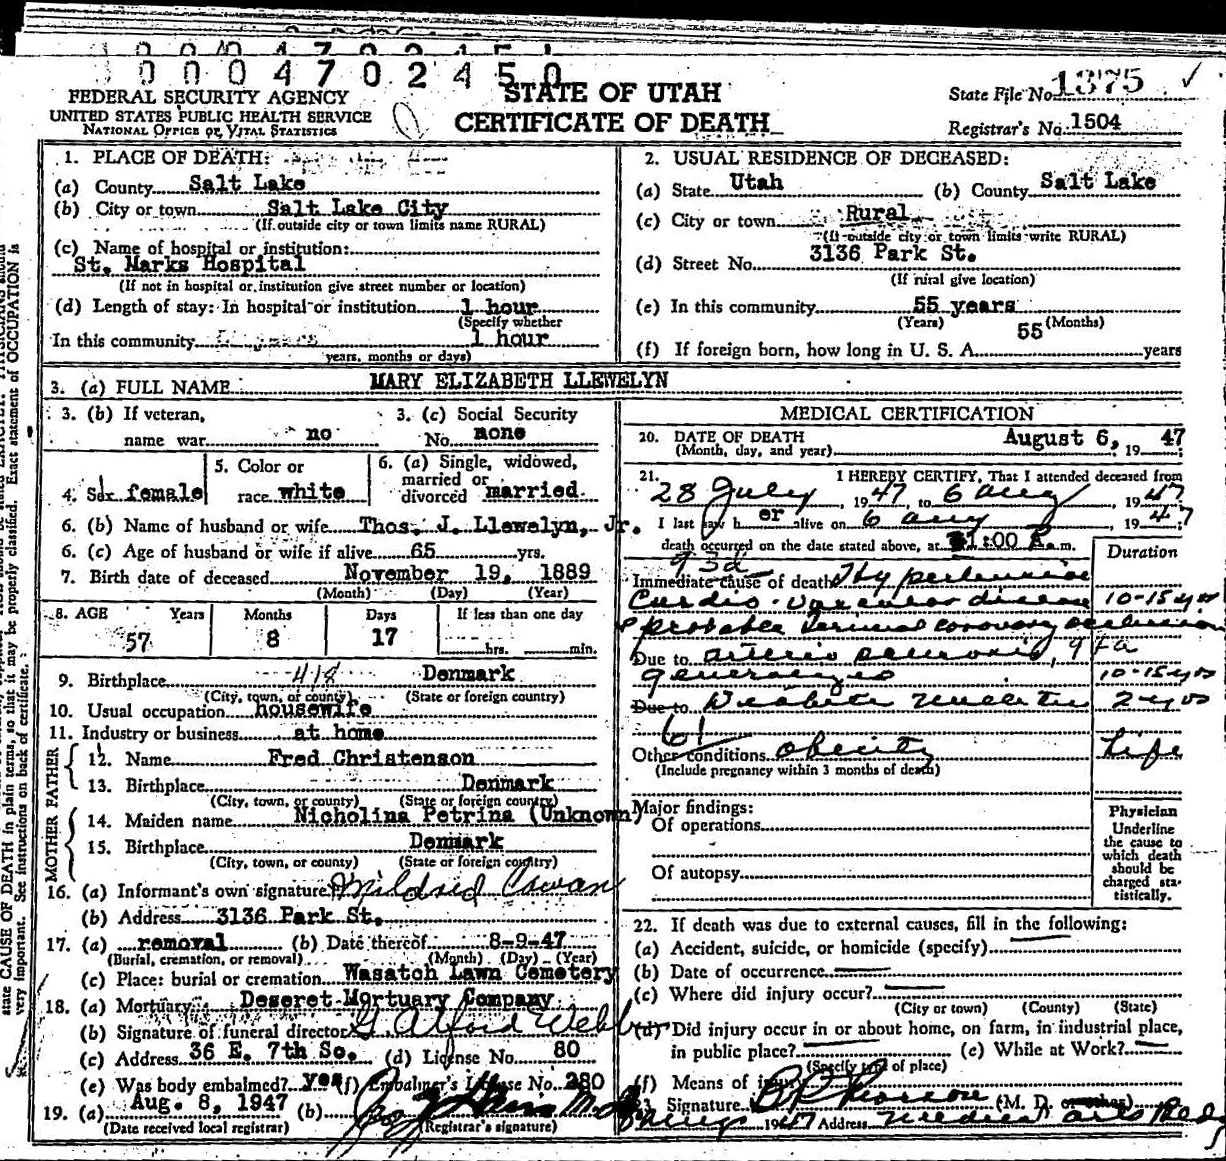 0 0 0 4 7 0 2 4 5 0
FEDERAL SECURITY AGENCY
UNITED STATES PUBLIC HEALTH SERVICE
NATIONAL OFFICE OF VITAL STATISTICS
STATE OF UTAH
CERTIFICATE OF DEATH
State File No. 1375
Registrar's No. 1504
1. PLACE OF DEATH:
(a) County Salt Lake
(b) City or town Salt Lake City
(If outside city or town limits name RURAL)
(c) Name of hospital or institution:
St. Marks Hospital
(If not in hospital or institution give street number or location)
(d) Length of stay: In hospital or institution 1 hour
(Specify whether
In this community 1 hour
years, months or days)
2. USUAL RESIDENCE OF DECEASED:
(a) State Utah (b) County Salt Lake
(c) City or town Rural
(If outside city or town limits write RURAL)
(d) Street No. 3136 Park St.
(If rural give location)
(e) In this community 55 years
(Years) (Months)
(f) If foreign born, how long in U. S. A. 55 years
3. (a) FULL NAME MARY ELIZABETH LLEWELYN
3. (b) If veteran, name war no
3. (c) Social Security No. none
4. Sex female
5. Color or race white
6. (a) Single, widowed, married or divorced married
6. (b) Name of husband or wife Thos. J. Llewelyn, Jr.
6. (c) Age of husband or wife if alive 65 yrs.
7. Birth date of deceased November 19, 1889
(Month) (Day) (Year)
8. AGE Years Months Days If less than one day
57 8 17 hrs. min.
9. Birthplace 418 Denmark
(City, town, or county) (State or foreign country)
10. Usual occupation housewife
11. Industry or business at home
FATHER
12. Name Fred Christenson
13. Birthplace Denmark
(City, town, or county) (State or foreign country)
MOTHER
14. Maiden name Nicholina Petrina (Unknown)
15. Birthplace Denmark
(City, town, or county) (State or foreign country)
16. (a) Informant's own signature Mildred Cowan
(b) Address 3136 Park St.
17. (a) removal (b) Date thereof 8-9-47
(Burial, cremation, or removal) (Month) (Day) (Year)
(c) Place: burial or cremation Wasatch Lawn Cemetery
18. (a) Mortuary Deseret Mortuary Company
(b) Signature of funeral director G Alford Webb
(c) Address 36 E. 7th So. (d) License No. 80
(e) Was body embalmed? yes (f) Embalmer's License No. 280
19. (a) Aug. 8, 1947 (b)
(Date received local registrar) (Registrar's signature)
MEDICAL CERTIFICATION
20. DATE OF DEATH August 6, 1947
(Month, day, and year)
21. I HEREBY CERTIFY, That I attended deceased from
28 July, 1947, to 6 aug, 1947
I last saw h er alive on 6 aug, 1947;
death occurred on the date stated above, at 1:00 P.m.
Duration
93d
Immediate cause of death Hypertensive
Cardio-vascular disease 10-15 yrs
& probable terminal coronary occlusion
Due to arterio sclerosis, 97a
generalized 10-15 yrs
Due to Diabetes mellitus 2 yrs
61
Other conditions obecity Life
(Include pregnancy within 3 months of death)
Major findings:
Of operations
Of autopsy
Physician
Underline
the cause to
which death
should be
charged sta-
tistically.
22. If death was due to external causes, fill in the following:
(a) Accident, suicide, or homicide (specify)
(b) Date of occurrence
(c) Where did injury occur?
(City or town) (County) (State)
(d) Did injury occur in or about home, on farm, in industrial place,
in public place? (e) While at Work?
(Specify type of place)
(f) Means of injury
Signature (M. D. or other)
1947 Address Medical arts Bldg
state CAUSE OF DEATH in plain terms, so that it may be properly classified. Exact statement of OCCUPATION is
very important. See instructions on back of certificate.